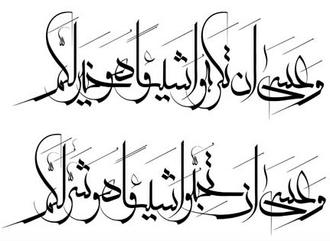 وعسى ان تكرهوا شيئا وهو خير لكم
وعسى ان تحبوا شيئا وهو شر لكم